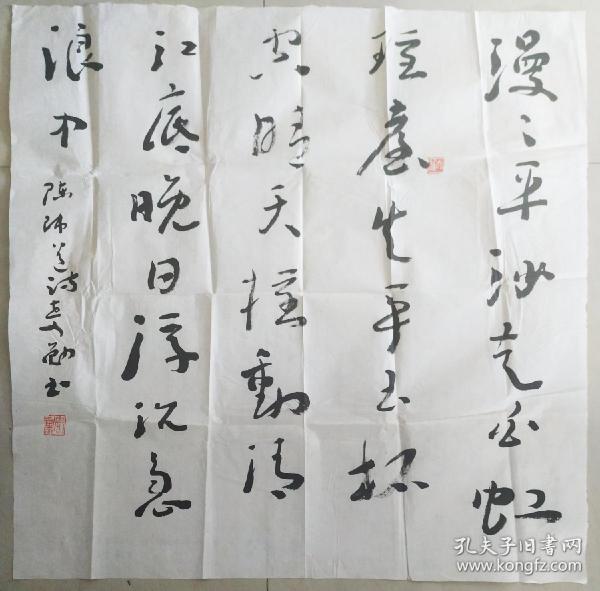 漫々平沙走白虹
瑶臺失手玉杯
空晴天摇動清
江底晚日浮沉急
浪中
陈师道诗 书
孔夫子旧书网
www.kongfz.com